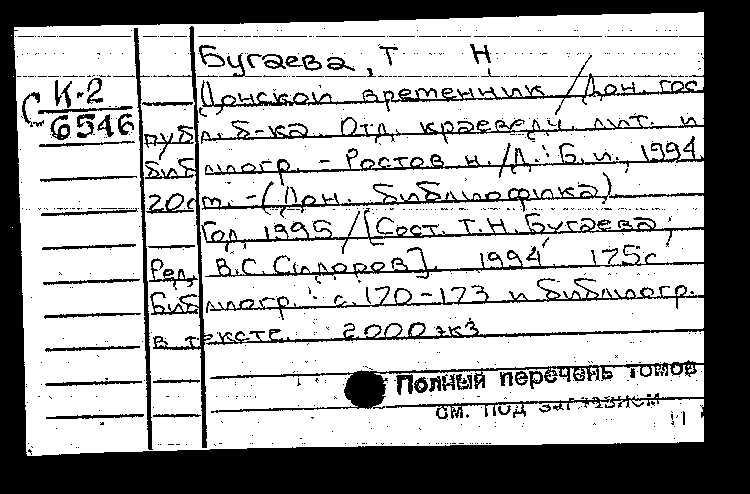 Бугаева, Т Н
С К-2
6546
Донской временник / Дон. гос
публ. б-ка. Отд. краеведч. лит. и
библиогр. - Ростов н./Д.: Б. и., 1994.
20см. - (Дон. библиофика)
Год 1995 / [Сост. Т.Н. Бугаева;
Ред. В.С. Сидоров]. 1994 175с
Библиогр.: с. 170-173 и библиогр.
в тексте. 2000экз
Полный перечень томов
см. под заглавием